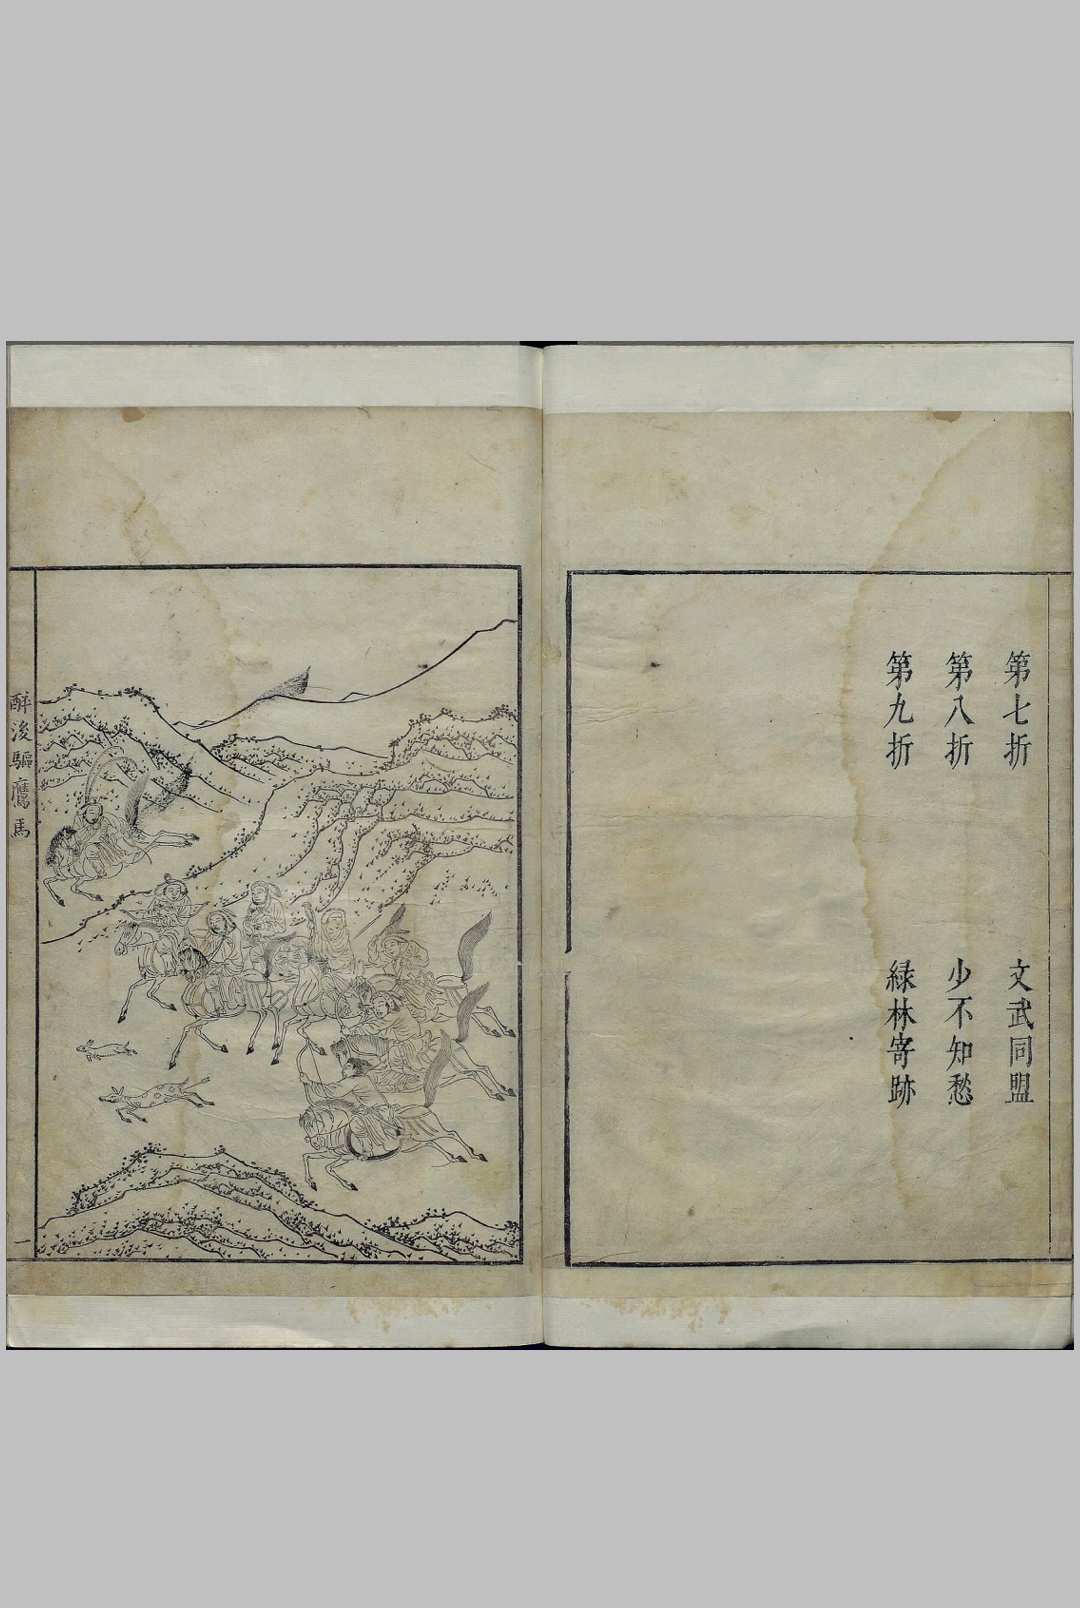 第七折　文武同盟
第八折　少不知愁
第九折　緑林寄跡
醉後驅鷹馬
一